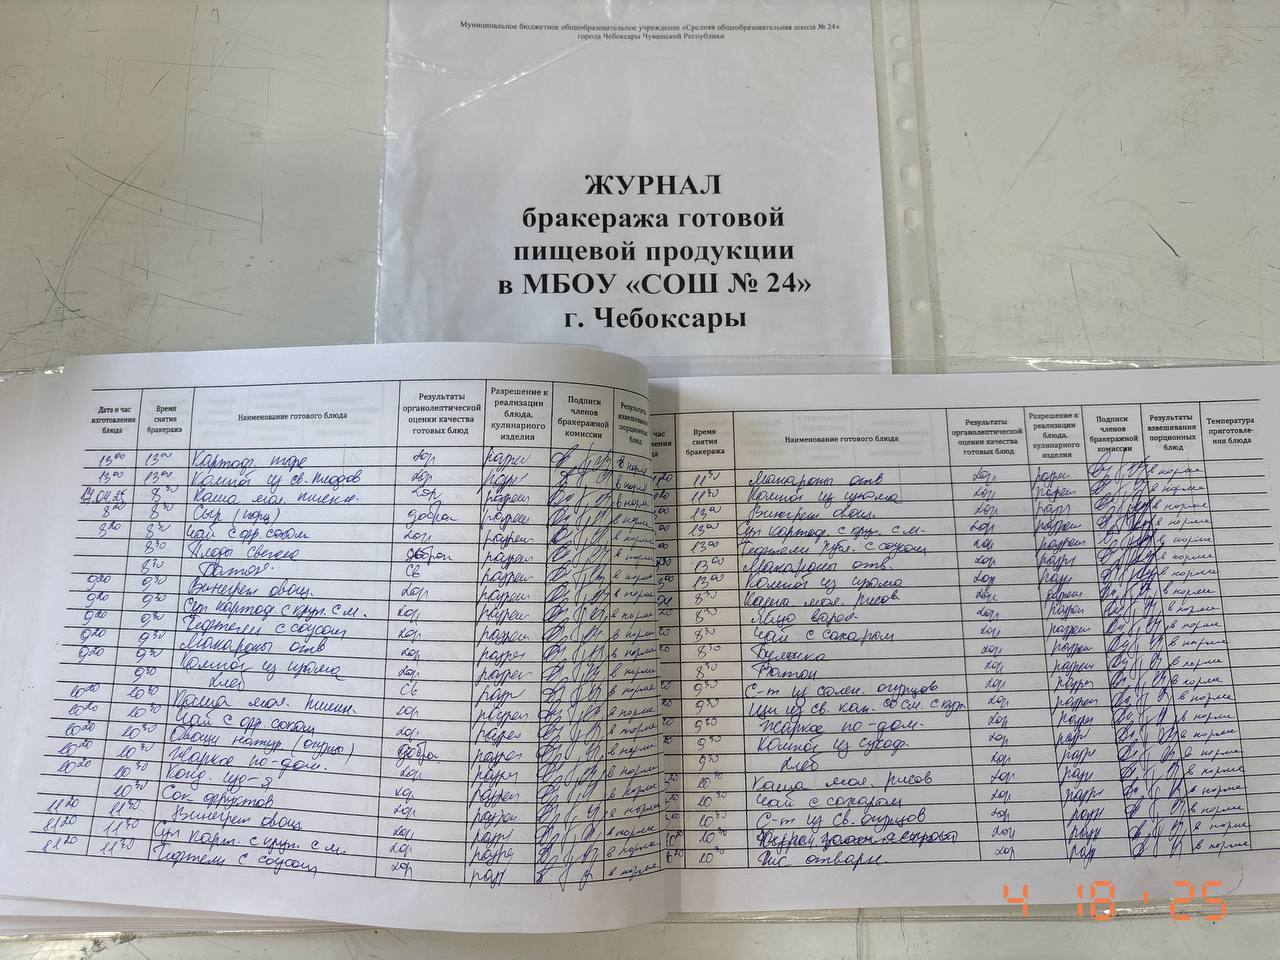 Муниципальное бюджетное общеобразовательное учреждение «Средняя общеобразовательная школа № 24»
города Чебоксары Чувашской Республики
ЖУРНАЛ
бракеража готовой
пищевой продукции
в МБОУ «СОШ № 24»
г. Чебоксары
Дата и час изготовления блюда Время снятия бракеража Наименование готового блюда Результаты органолептической оценки качества готовых блюд Разрешение к реализации блюда, кулинарного изделия Подписи членов бракеражной комиссии Результаты взвешивания порционных блюд
13 00 13 00 Картоф. пюре хор разреш в норме
13 00 13 00 Компот из св. плодов хор разр в норме
17.04.25 8 30 Каша мол. пшен. хор разреш в норме
8 20 8 30 Сыр (порц) добрая разреш в норме
8 20 8 30 Чай с фр. соком хор разреш в норме
8 30 Плоды свежие добрая разреш в норме
8 30 Батон. св разреш в норме
9 20 9 30 Винегрет овощ. хор разреш в норме
9 20 9 30 Суп картоф с круп. с м. хор разреш в норме
9 20 9 30 Тефтели с соусом хор разреш в норме
9 20 9 30 Макароны отв хор разреш в норме
9 20 9 30 Компот из изюма хор разреш в норме
9 30 Хлеб св разр в норме
10 20 10 30 Каша мол. пшен. хор разреш в норме
10 20 10 30 Чай с фр. соком хор разреш в норме
10 20 10 30 Овощи натур (огурцы) добрая разреш в норме
10 20 10 30 Жаркое по-дом. хор разреш в норме
10 20 10 30 Конд. изд-я
10 30 Сок фруктов
11 20 11 30 Винегрет овощ хор разр в норме
11 20 11 30 Суп карт. с круп. с м. хор разреш в норме
11 20 11 30 Тефтели с соусом хор разр в норме
час Время снятия бракеража Наименование готового блюда Результаты органолептической оценки качества готовых блюд Разрешение к реализации блюда, кулинарного изделия Подписи членов бракеражной комиссии Результаты взвешивания порционных блюд Температура приготовле- ния блюда
11 30 Макароны отв хор разреш в норме
11 30 Компот из изюма хор разреш в норме
13 00 Винегрет овощ. хор разр в норме
13 00 Суп картоф с круп. с м. хор разреш в норме
13 00 Тефтели рубл. с соусом хор разреш в норме
13 00 Макароны отв. хор разр в норме
13 00 Компот из изюма хор разр в норме
8 30 Каша мол. рисов хор разреш в норме
8 30 Яйцо варен. хор разреш в норме
8 30 Чай с сахаром хор разр в норме
8 30 Булочка хор разреш в норме
8 30 Батон хор разреш в норме
9 30 С-т из солен. огурцов хор разр в норме
9 30 Щи из св. кап. со см. с кур. хор разреш в норме
9 30 Жаркое по-дом. хор разр в норме
9 30 Компот из сухоф. хор разр в норме
9 30 Хлеб хор разр в норме
10 30 Каша мол. рисов хор разр в норме
10 30 Чай с сахаром хор разр в норме
10 30 С-т из св. огурцов хор разр в норме
10 20 10 30 хор разр в норме
10 30 Рис отварн. хор разр в норме
4 18 '25